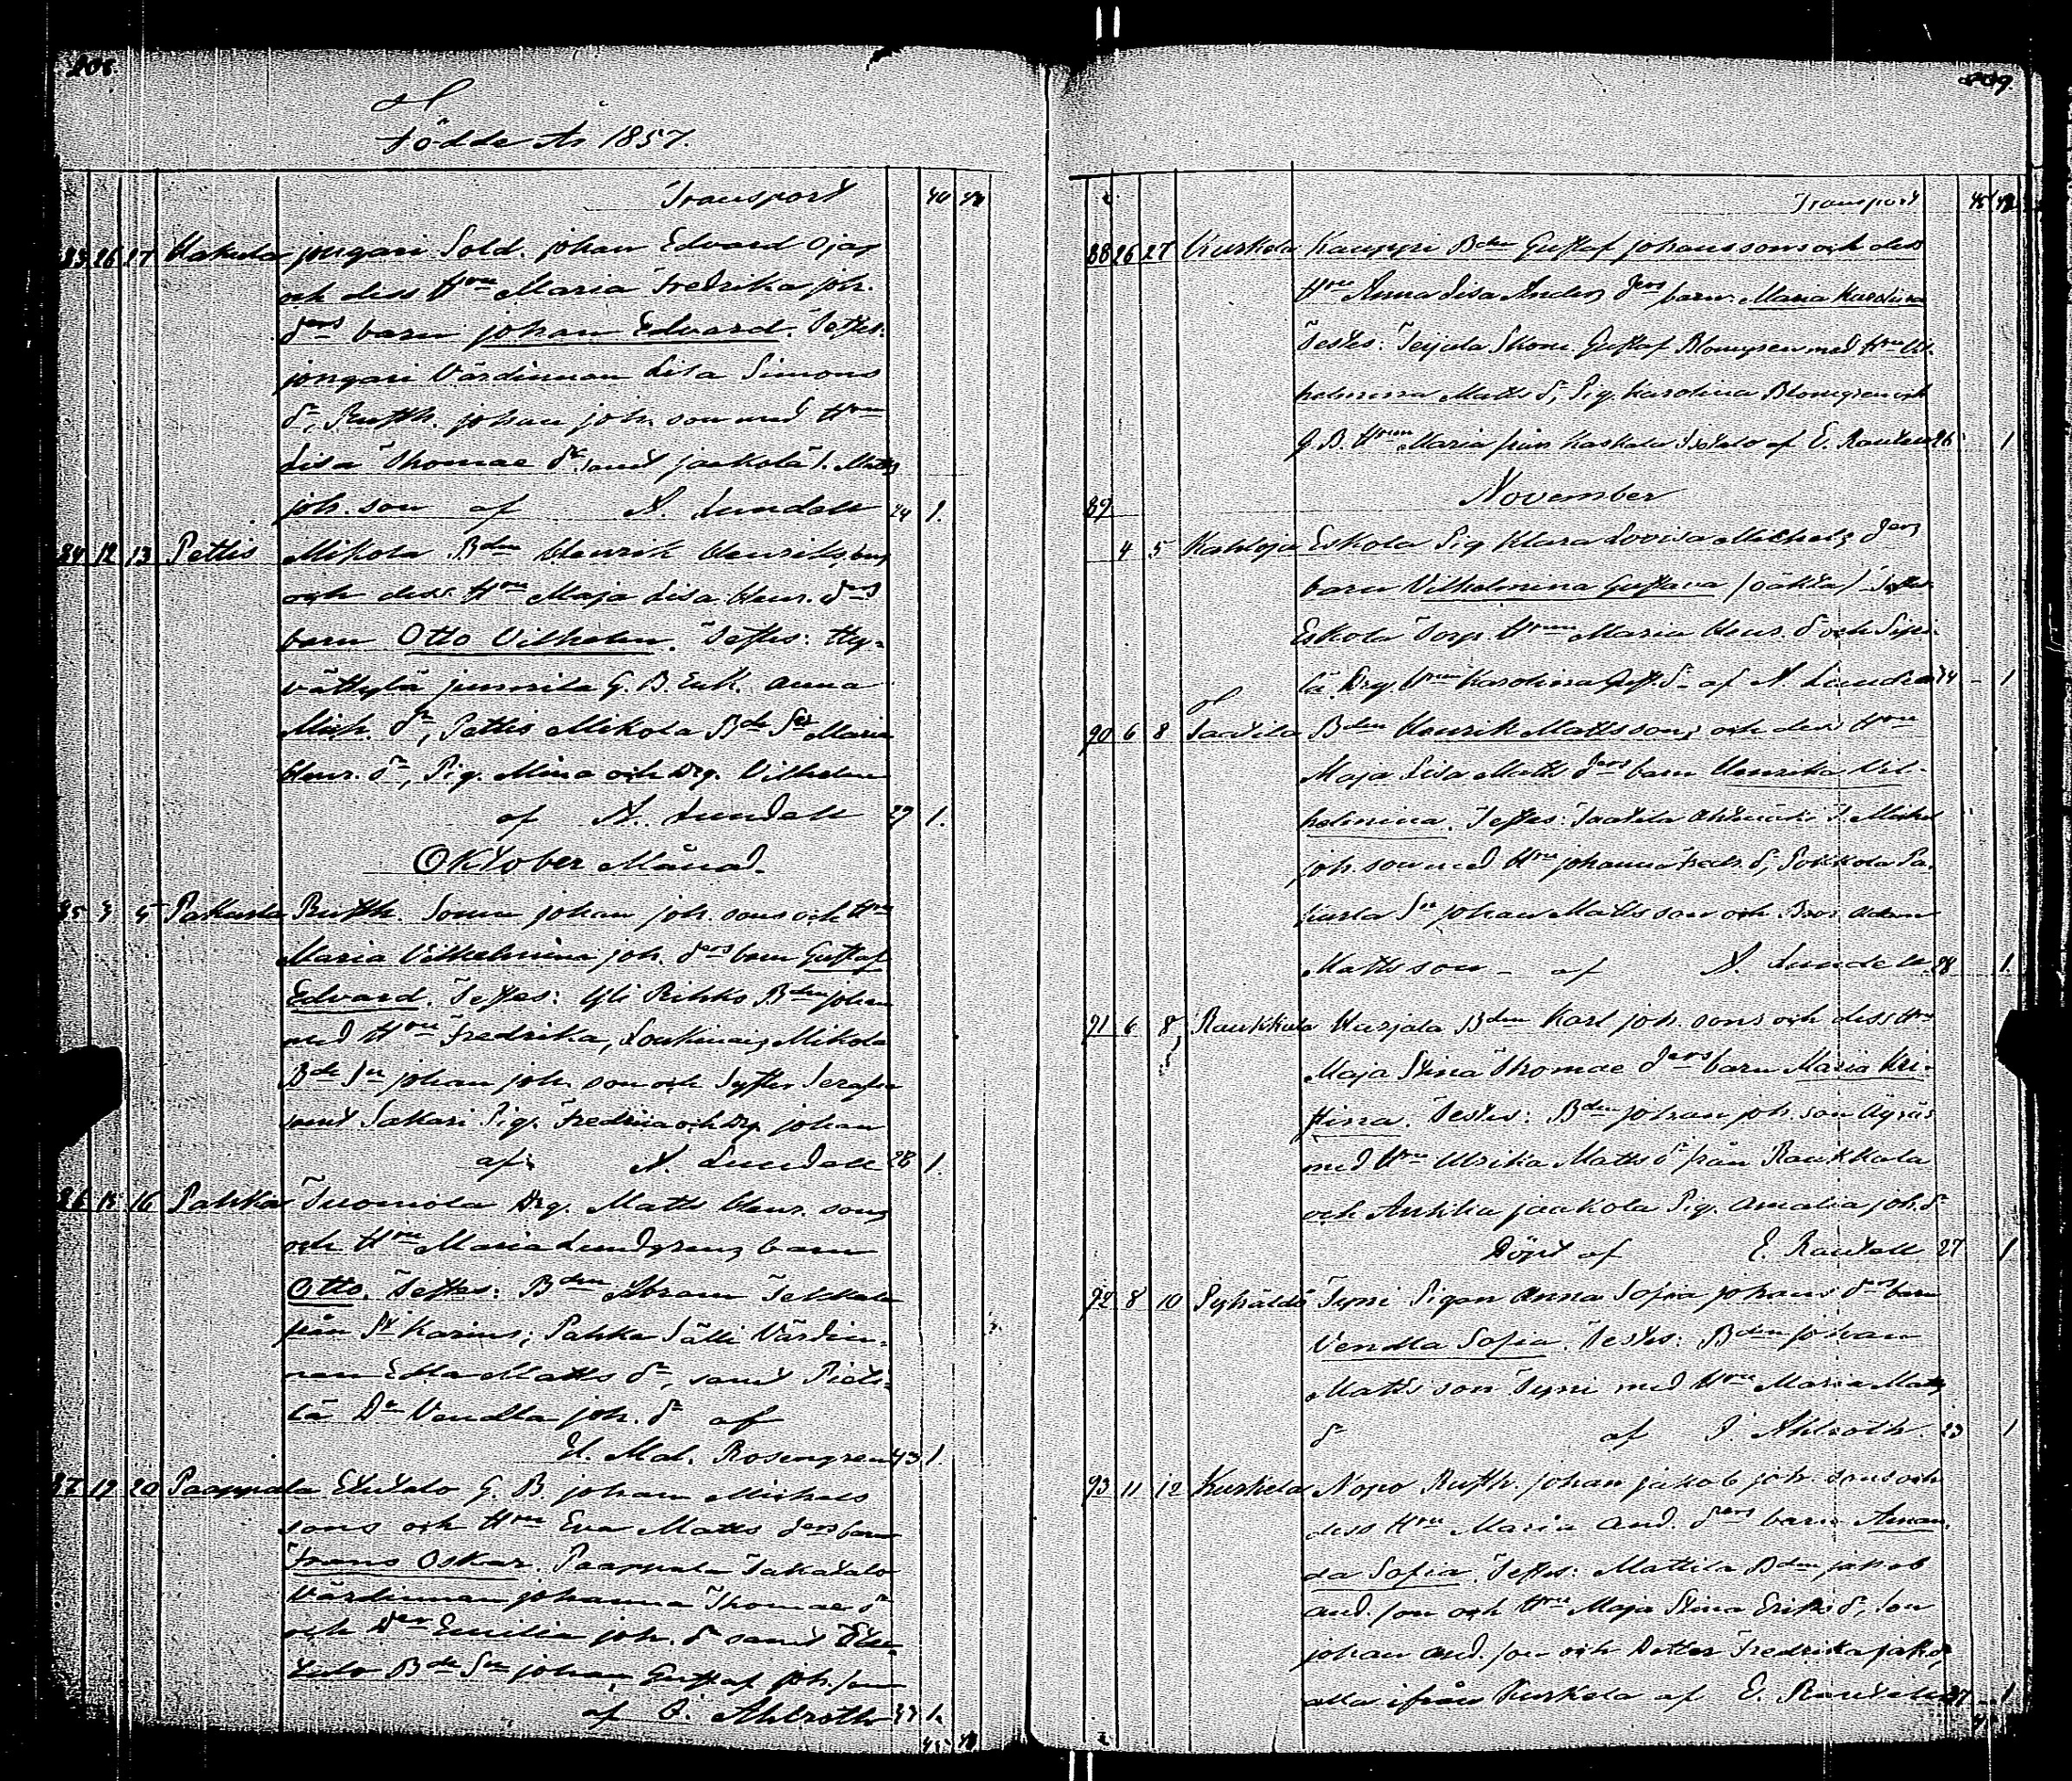 208.
Födde År 1857.
Transport 40 42
83 26 27 Hakula jongari Sold. johan Edvard Ojas
och dess Hru Maria Fredrika joh.
drs barn johan Edvard. Testes:
jongari Värdinnan Lisa Simons
dr, Rusth. johan joh. son med Hru
Lisa Thomae dr samt jaakola T. Matts
joh. son af A. Lundell 24 1.
84 12 13 Pettis Mikola Bdn Henrik Henrikssons
och dess Hru Maja Lisa Henr. drs
barn Otto Vilhelm. Testes: Hy-
vättylä G. B. Enk. Anna
Mich. dr, Pettis Mikola Bde Sr Maria
Henr. dr, Pig. Mina och Drg. Vilhelm
af A. Lundell 29 1.
Oktober Månad.
85 3 5 Pakurla Rusth. Sonen johan joh. sons och Hru
Maria Vilhelmina joh. drs barn Gustaf
Edvard. Testes: Yli Rihko Bdn johan
med Hru Fredrika, Mikola
Bde Sn johan joh. son och Syster Serafia
samt Sakari Pig. Fredrica och Drg johan
af A. Lundell 28 1.
86 15 16 Pahka Tuomola Drg. Matts Henr. sons
och Hru Maria Lundgrens barn
Otto. Testes: Bdn Abram Tekkala
från St Karins; Pahka Sälli Värdin-
nan Edla Matts dr, samt Pieti-
lä Dr Vendla joh. dr af
H. Mal. Rosengren 43 1.
87 19 20 Paappala Etutalo G. B. johan Michels
sons och Hru Eva Matts drs barn
Frans Oskar. Paappala Takatalo
Värdinnan johanna Thomae dr
och Dr Emilia joh. dr samt Etu-
talo Bde Sn johan Gustaf joh. son
af I. Ahlroth 33 1.
45 42
209.
2 Transport 45 42
88 26 27 Kuskela Kauppi Bdn Gustaf johanssons och dess
Hru Anna Lisa Anders drs barn Maria Karolina
Testes: Teijula Skom. Gustaf Blomgren med Hru Vil-
helmina Matts dr, Pig. Karolina Blomgren och
G. B. Hrun Maria från Kaskala Isotalo af E. Rautell 26 1
November
89
4 5 Kahloja Eskola Pig Klara Lovisa Michels drs
barn Vilhelmina Gustava (oäkta) Testes
Eskola Torp Hrun Maria Henr. dr och Sipi-
lä Drg. Hrun Karolina Gust. dr af A. Lundell 24 - 1
90 6 8 Saarila Bdn Henrik Mattssons och dess Hru
Maja Lisa Matts drs barn Henrika Vil-
helmina. Testes: Saarila T. Michel
joh. son med Hru johanna Fredr. dr, Sokkola Pa-
kurla Sn johan Mattsson och Bror Adam
Mattsson - af A. Lundell 28 1
91 6 8 Raukkula Hurjala Bdn Karl joh. sons och dess Hru
Maja Stina Thomae drs barn Maria Kri-
stina. Testes: Bdn johan joh. son Äyräs
med Hru Ulrika Matts dr från Raukkala
och Anttila jaakola Pig. Amalia joh. dr
Döpt af E. Rautell 27 1
92 8 10 Pyhältö Tyni Pigan Anna Sofia johans drs barn
Vendla Sofia. Testes: Bdn johan
Matts son Tyni med Hru Maria Matts
dr af I. Ahlroth. 23 1
93 11 12 Kuskela Nopo Rusth. johan jakob joh. sons och
dess Hru Maria And. drs barn Aman-
da Sofia. Testes: Mattila Bdn jakob
And. son och Hru Maja Stina Eriks dr, Son
johan And. son och Dotter Fredrika jakobs,
alla ifrån Kuskela af E. Rautell 27 - 1
2